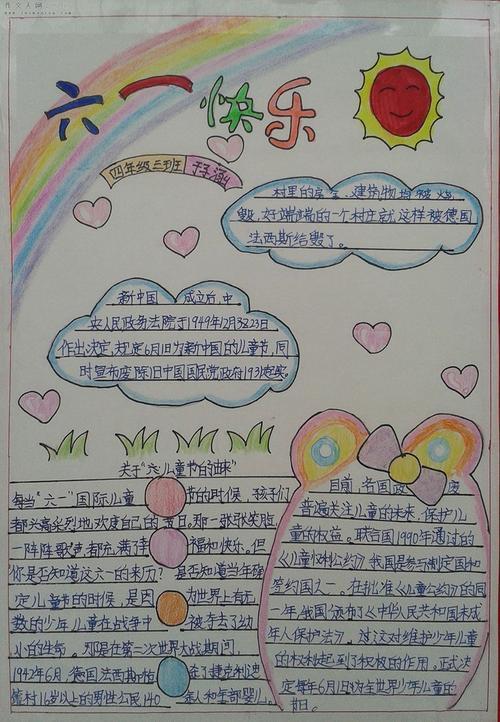 作文人网
六一快乐
四年级三班
村里的房舍、建筑物均被烧
毁,好端端的一个村庄就这样被德国
法西斯给毁了。
新中国 成立后,中
央人民政务法院于1949年12月23日
作出决定,规定6月1日为新中国的儿童节,同
时宣布废除旧中国国民党政府1931
关于“六一儿童节的由来”
每当“六一”国际儿童 节的时候,孩子们
都兴高采烈地,欢度自己的节日。那一张张笑脸,
一阵阵歌声,都充满了幸 福和快乐。但
你是否知道这六一的来历? 是否知道当年确
定儿童节的时候,是因 为世界上有无
数的少年儿童在战争中 被夺去了幼
小的生命。那是在第二次世界大战期间,
1942年6月,德国法西斯 在了捷克利迪
16岁以上的男性公民140 人和全部婴儿。
目前,各国政 度
普遍关注儿童的未来,保护儿
童的权益。联合国1990年通过的
《儿童权利公约》,我国是参与制定国和
签约国之一。在批准《儿童公约》的同
一年,我国颁布了《中华人民共和国未成
年人保护法》,过这对维护少年儿童
的权利起到了积极的作用。正式决
定每年6月1日为全世界少年儿童的
节日。